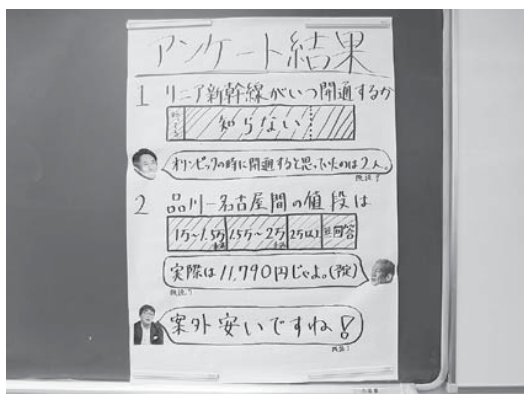 アンケート結果
1 リニア新幹線がいつ開通するか
知らない
オリンピックの時に開通すると思っていたのは2人。
2 品川-名古屋間の値段は
1万~1.5万 1.5万~2万 2.5以上 無回答
実際は11,790円じゃよ。(予定)
案外安いですね!